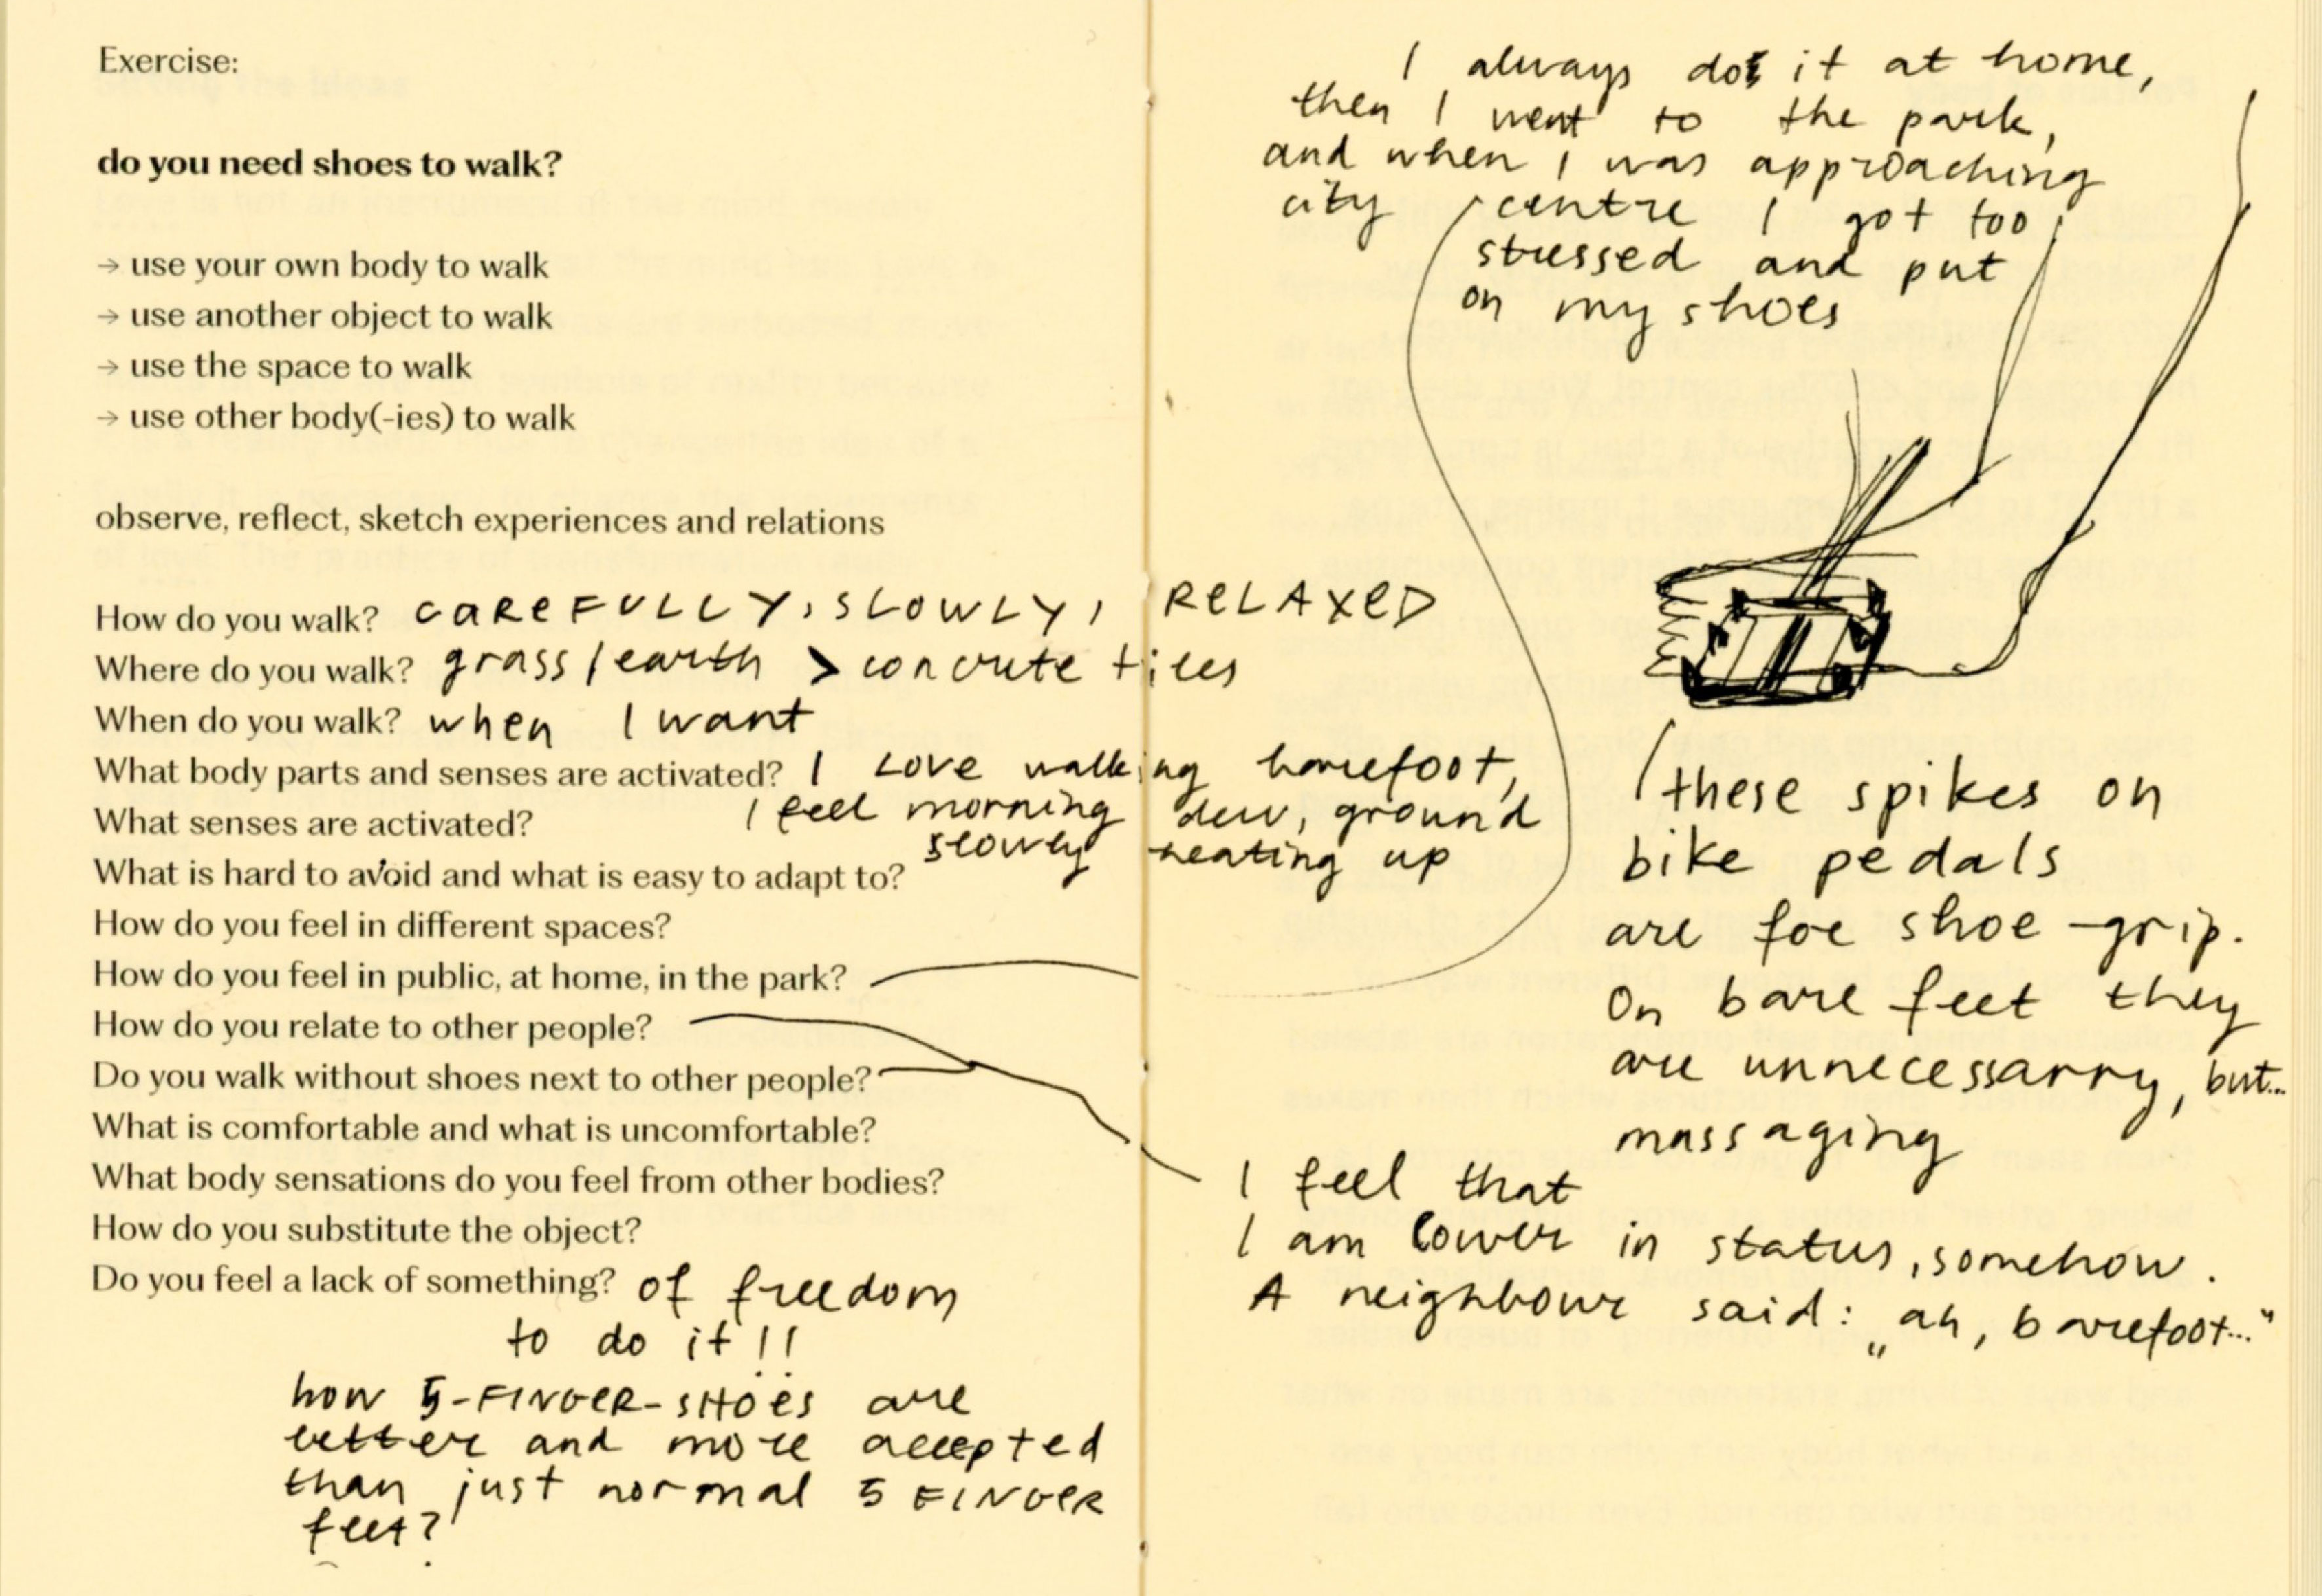 Exercise:
do you need shoes to walk?
→ use your own body to walk
→ use another object to walk
→ use the space to walk
→ use other body(-ies) to walk
observe, reflect, sketch experiences and relations
How do you walk? CAREFULLY, SLOWLY, RELAXED
Where do you walk? grass / earth > concrete tiles
When do you walk? when I want
What body parts and senses are activated? I LOVE walking barefoot,
I feel morning dew, ground
slowly heating up
What senses are activated?
What is hard to avoid and what is easy to adapt to?
How do you feel in different spaces?
How do you feel in public, at home, in the park?
How do you relate to other people?
Do you walk without shoes next to other people?
What is comfortable and what is uncomfortable?
What body sensations do you feel from other bodies?
How do you substitute the object?
Do you feel a lack of something? of freedom
to do it!!
how 5-FINGER-SHOES are
better and more accepted
than just normal 5 FINGER
feet?
I always do it at home,
then I went to the park,
and when I was approaching
city centre I got too
stressed and put
on my shoes
these spikes on
bike pedals
are for shoe-grip.
On bare feet they
are unnecessarry, but...
massaging
I feel that
I am lower in status, somehow.
A neighbour said: „ah, barefoot..."